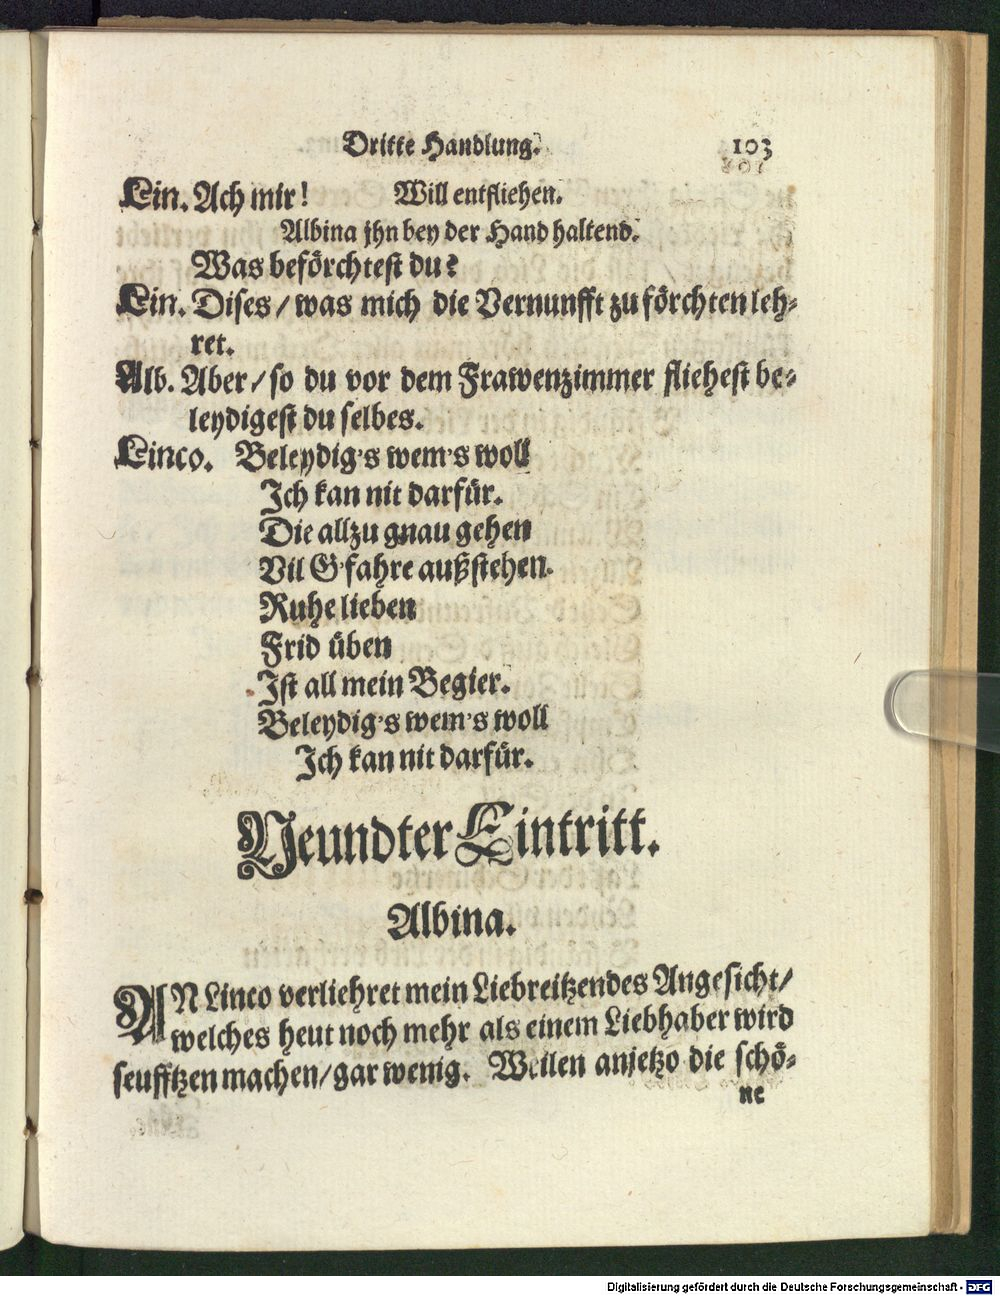 Dritte Handlung. 103
Lin. Ach mir! Will entfliehen.
Albina jhn bey der Hand haltend.
Was beförchtest du?
Lin. Dises / was mich die Vernunfft zu förchten leh-
ret.
Alb. Aber / so du vor dem Frawenzimmer fliehest be-
leydigest du selbes.
Linco. Beleydig's wem's woll
Ich kan nit darfür.
Die allzu gnau gehen
Vil G'fahre außstehen.
Ruhe lieben
Frid üben
Ist all mein Begier.
Beleydig's wem's woll
Ich kan nit darfür.
Neundter Eintritt.
Albina.
AN Linco verliehret mein Liebreitzendes Angesicht /
welches heut noch mehr als einem Liebhaber wird
seufftzen machen / gar wenig. Weilen anjetzo die schö-
ne
Digitalisierung gefördert durch die Deutsche Forschungsgemeinschaft - DFG